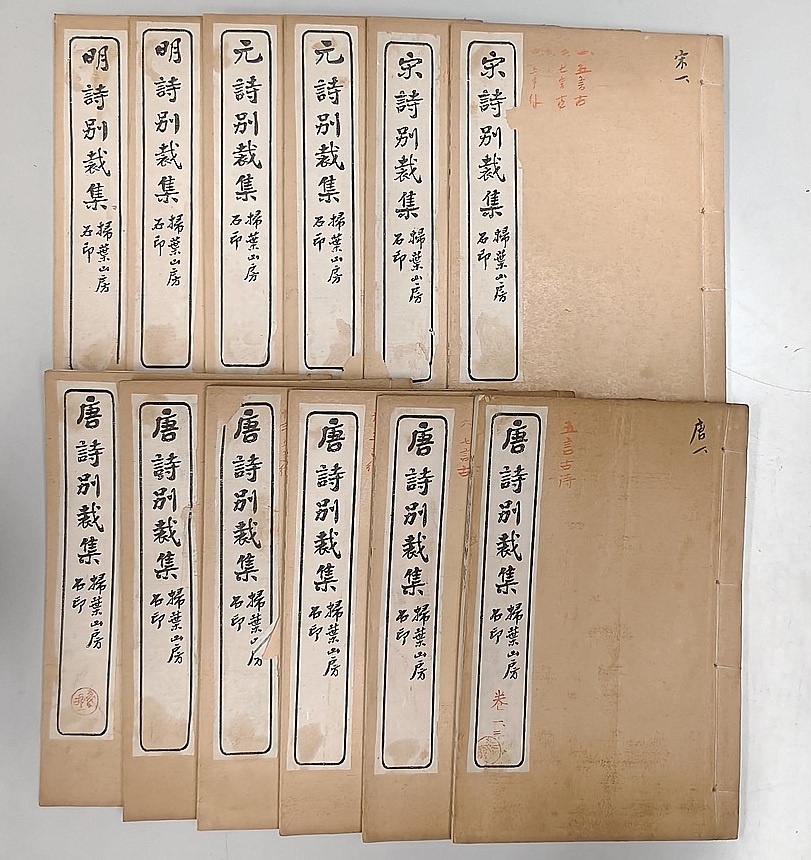 宋一
一、五言古
宋詩別裁集
掃葉山房
石印
宋詩別裁集
掃葉山房
石印
元詩別裁集
掃葉山房
石印
元詩別裁集
掃葉山房
石印
明詩別裁集
掃葉山房
石印
明詩別裁集
掃葉山房
石印
唐一
五言古詩
唐詩別裁集
掃葉山房
石印
卷一、三
六、七言古
唐詩別裁集
掃葉山房
石印
唐詩別裁集
掃葉山房
石印
唐詩別裁集
掃葉山房
石印
唐詩別裁集
掃葉山房
石印
唐詩別裁集
掃葉山房
石印